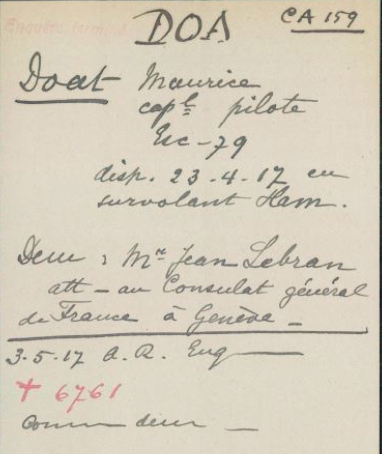 DOA
CA 159
Enquête fermée
Doat Maurice
capl pilote
Esc-79
disp. 23.4.17 en
survolant Ham.
Dem : Mr Jean Lebran
att - au Consulat général
de France à Genève -
3.5.17 A.R. Enq
† 6761
Comm dem -